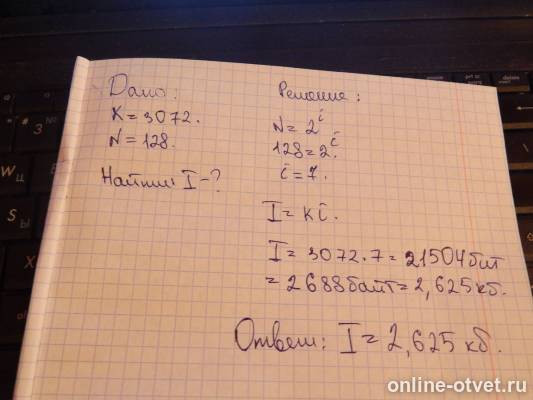 Дано:
K = 3072.
N = 128.
Найти: I - ?
Решение:
N = 2^i
128 = 2^i.
i = 7.
I = Ki.
I = 3072 · 7 = 21504 бит
= 2688 байт = 2,625 кб.
Ответ: I = 2,625 кб.
online-otvet.ru